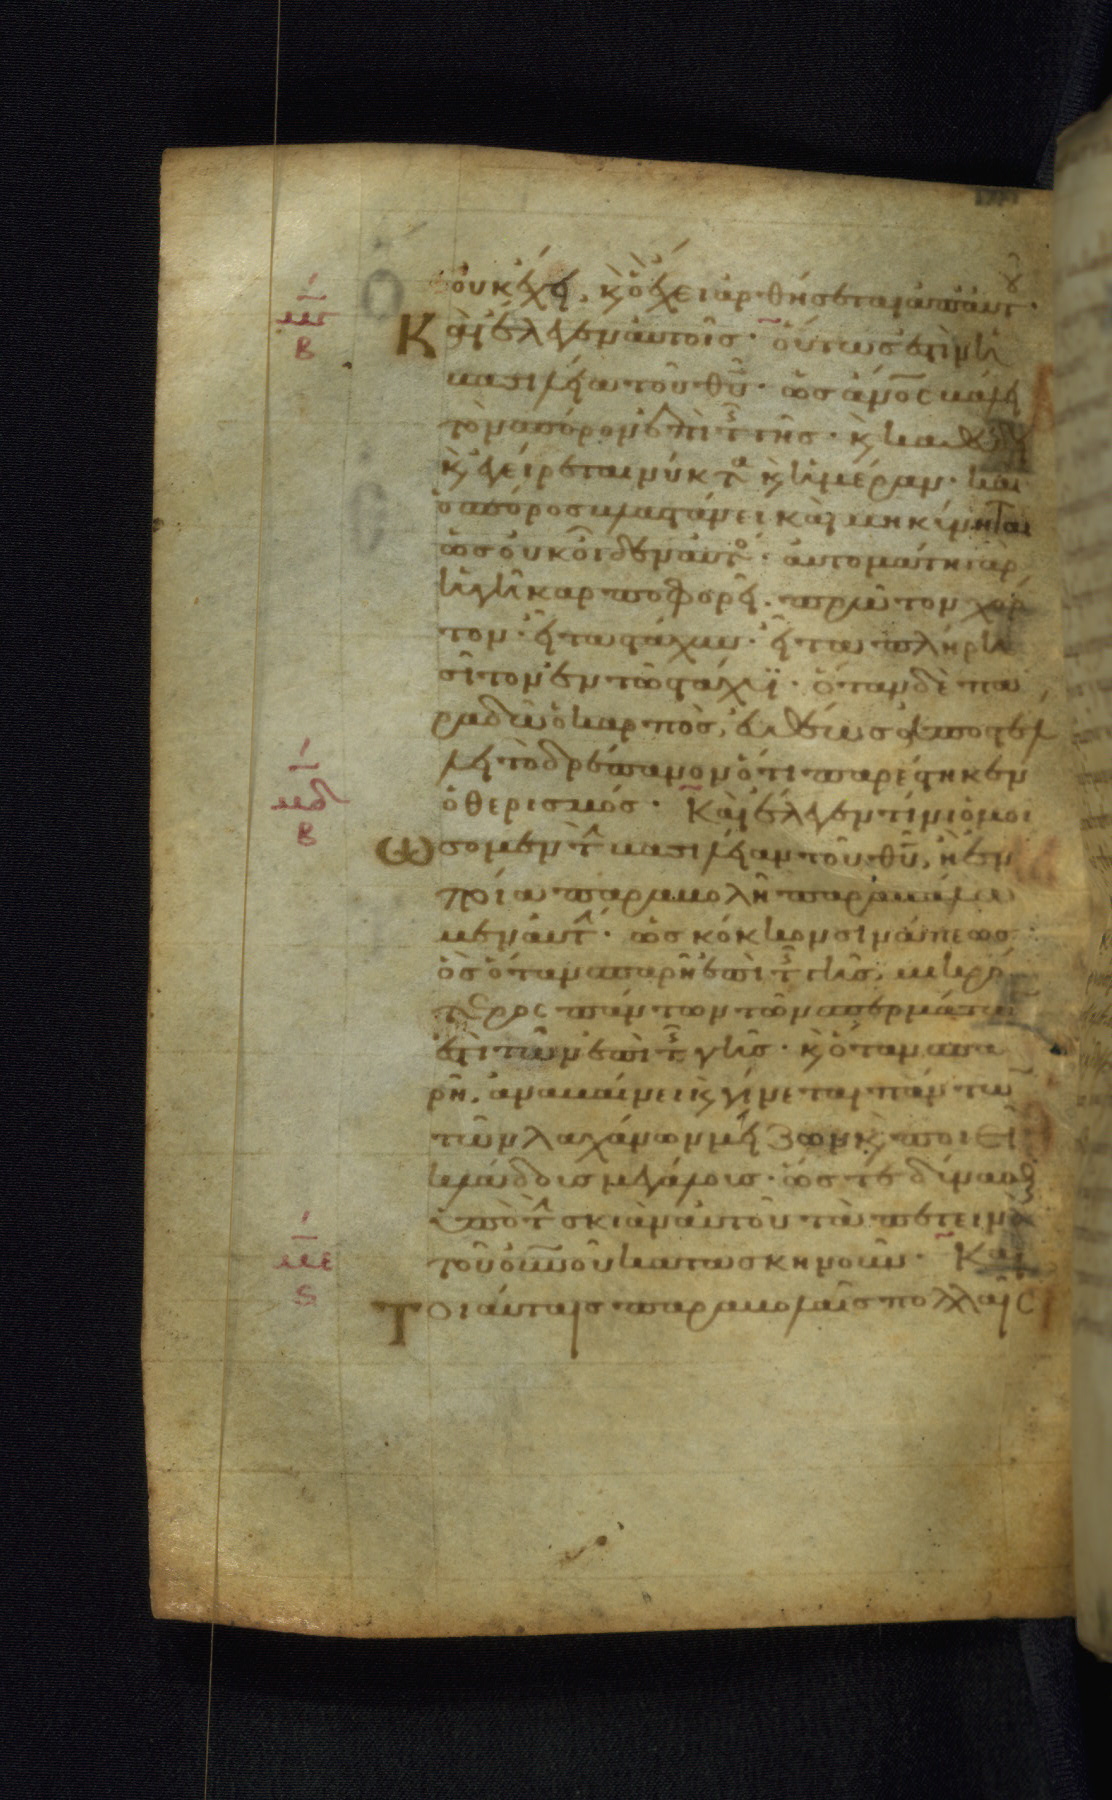 οὐκ ἔχει, κ ὃ ἔχει ἀρθήσεται ἀπ αυτ·
Καὶ ἔλεγεν αὐτοῖς· οὕτως ἐστὶν ἡ
βασιλεία τοῦ θῦ· ὡς ἄνος βάλῃ
τὸν σπόρον ἐπὶ τ γῆς· κ καθεύδῃ
κ ἐγείρεται νύκτα κ ἡμέραν· καὶ
ὁ σπόρος βλαστάνει καὶ μηκύνηται
ὡς οὐκ οἶδεν αὐτο· αὐτομάτη γὰρ
ἡ γῆ καρποφορεῖ· πρῶτον χόρ
τον· εἶτα στάχυν· εἶτα πλήρη
σῖτον ἐν τῶ στάχυϊ· ὅταν δὲ πα
ραδῶ ὁ καρπὸς, εὐθέως ἀποστέλ
λει τὸ δρέπανον ὅτι παρέστηκεν
ὁ θερισμός· Καὶ ἔλεγεν τίνι ὁμοι
ώσομεν τ βασιλείαν τοῦ θῦ, ἢ ἐν
ποία παραβολῆ παραβάλω
μεν αὐτ· ὡς κόκκον σινάπεως·
ὃς ὅταν σπαρῆ ἐπὶ τ γῆς, μικρό
τερος πάντων τῶν σπερμάτω
ἐστὶ τῶν ἐπὶ τ γῆς· κ ὅταν σπα
ρῆ, ἀναβαίνει κ γίνεται πάντω
τῶν λαχάνων μείζων κ ποιεῖ
κλάδους μεγάλους· ὥστε δύνασθ
ὑπὸ τ σκιὰν αὐτοῦ τὰ πετεινὰ
τοῦ οὐνοῦ κατασκηνοῦν· Καὶ
Τοιαύταις παραβολαῖς πολλαῖς